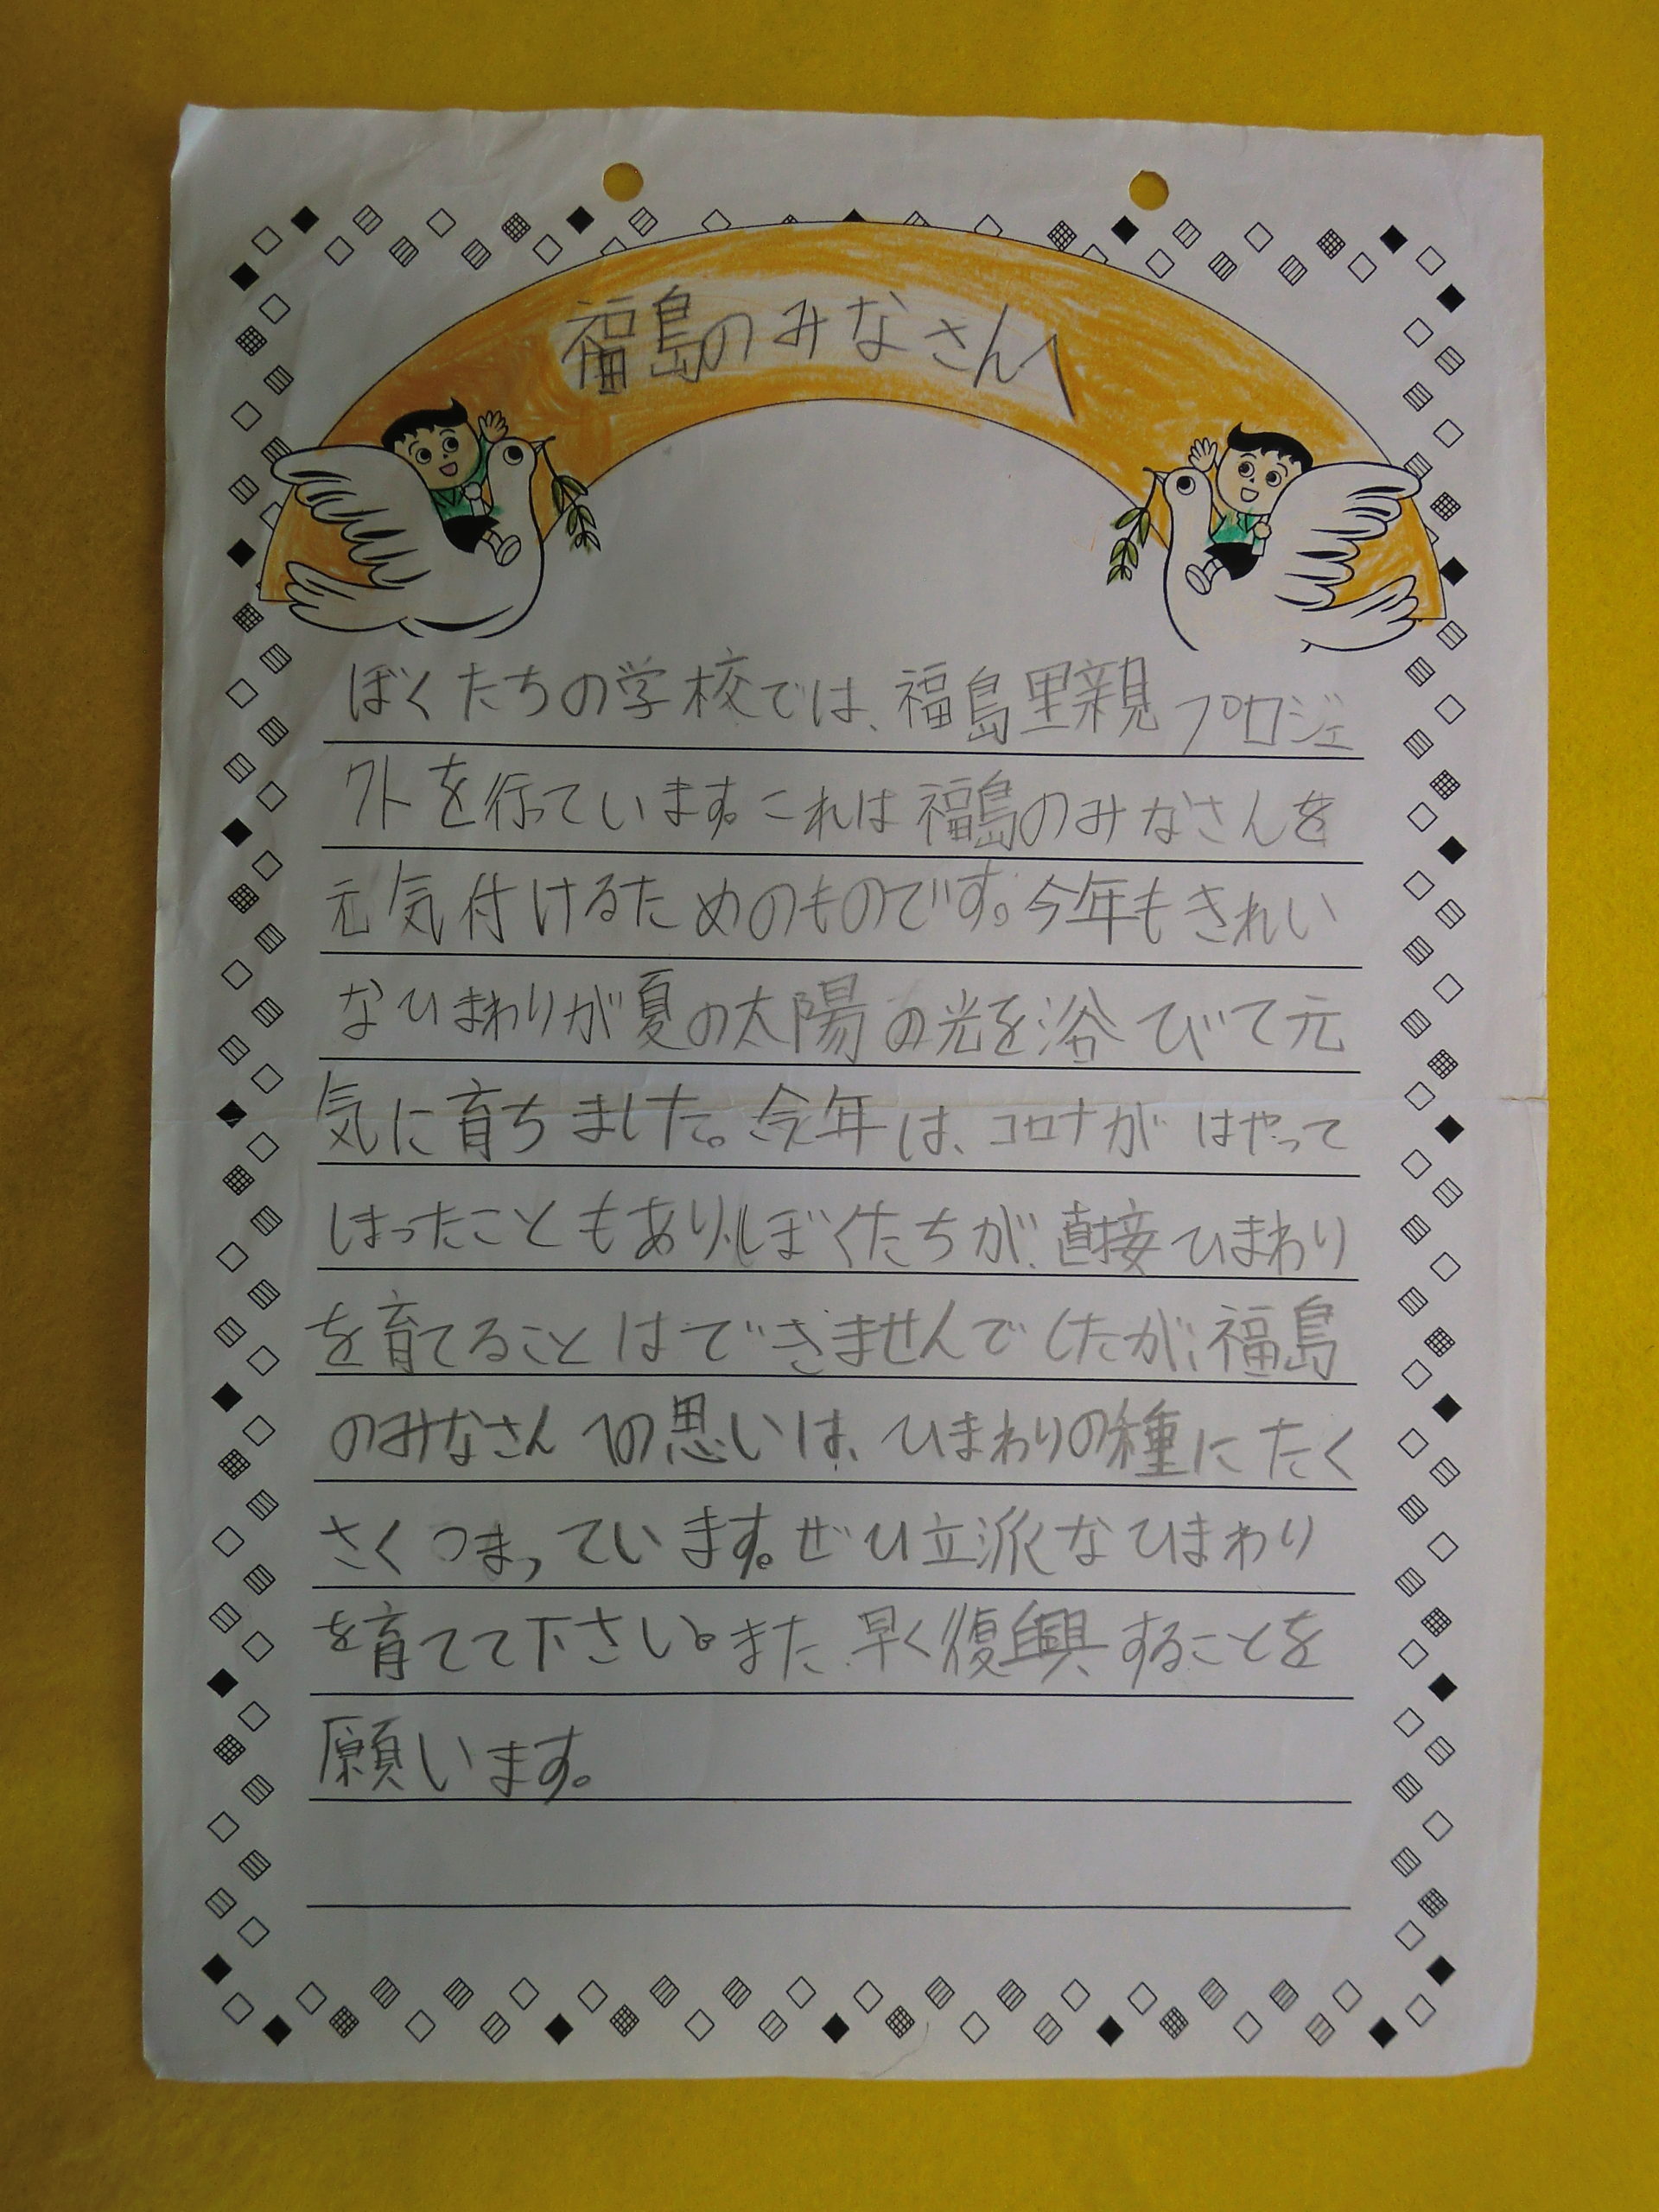 福島のみなさんへ
ぼくたちの学校では、福島里親プロジェ
クトを行っています。これは福島のみなさんを
元気付けるためのものです。今年もきれい
なひまわりが夏の太陽の光を浴びて元
気に育ちました。今年は、コロナがはやって
しまったこともあり、ぼくたちが、直接ひまわり
を育てることはできませんでしたが、福島
のみなさんへの思いは、ひまわりの種にたく
さくつまっています。ぜひ立派なひまわり
を育てて下さい。また、早く復興することを
願います。